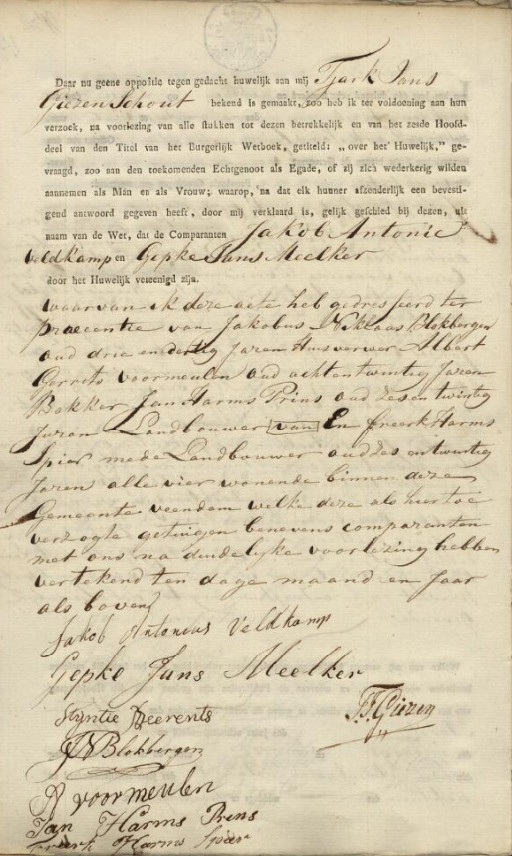 Daar nu geene oppositie tegen gedacht huwelijk aan mij Tjark Jans
Giezen Schout bekend is gemaakt, zoo heb ik ter voldoening aan hun
verzoek, na voorlezing van alle stukken tot dezen betrekkelijk en van het zesde Hoofd-
deel van den Titel van het Burgerlijk Wetboek, getiteld: „over het Huwelijk," ge-
vraagd, zoo aan den toekomenden Echtgenoot als Egade, of zij zich wederkerig wilden
aannemen als Man en als Vrouw; waarop, na dat elk hunner afzonderlijk een bevesti-
gend antwoord gegeven heeft, door mij verklaard is, gelijk geschied bij dezen, uit
naam van de Wet, dat de Comparanten Jakob Antonie
Veldkamp en Gepke Jans Meelker
door het Huwelijk vereenigd zijn.
waarvan ik deze acte heb gedresseerd ter
praecentie van Jakobus Niklaas Blokbergen
oud drie en dertig Jaren Huisverwer Albert
Gerrets voormeulen oud acht en twintig Jaren
Bakker Jan Harms Prins oud zes en twintig
Jaren Landbouwer van En freerk Harms
Spier mede Landbouwer oud zes en twintig
Jaren alle vier wonende binnen deze
Gemeente veendam welke deze als hier toe
verzogte getuigen benevens comparanten
met ons na duidelyke voorlezing hebben
vertekend ten dage maand en Jaar
als boven
Jakob Antonius Veldkamp
Gepke Jans Meelker
Styntie Beerents
TJ Giezen
JN Blokbergen
A voormeulen
Jan Harms Prens
Freerk Harms Spier